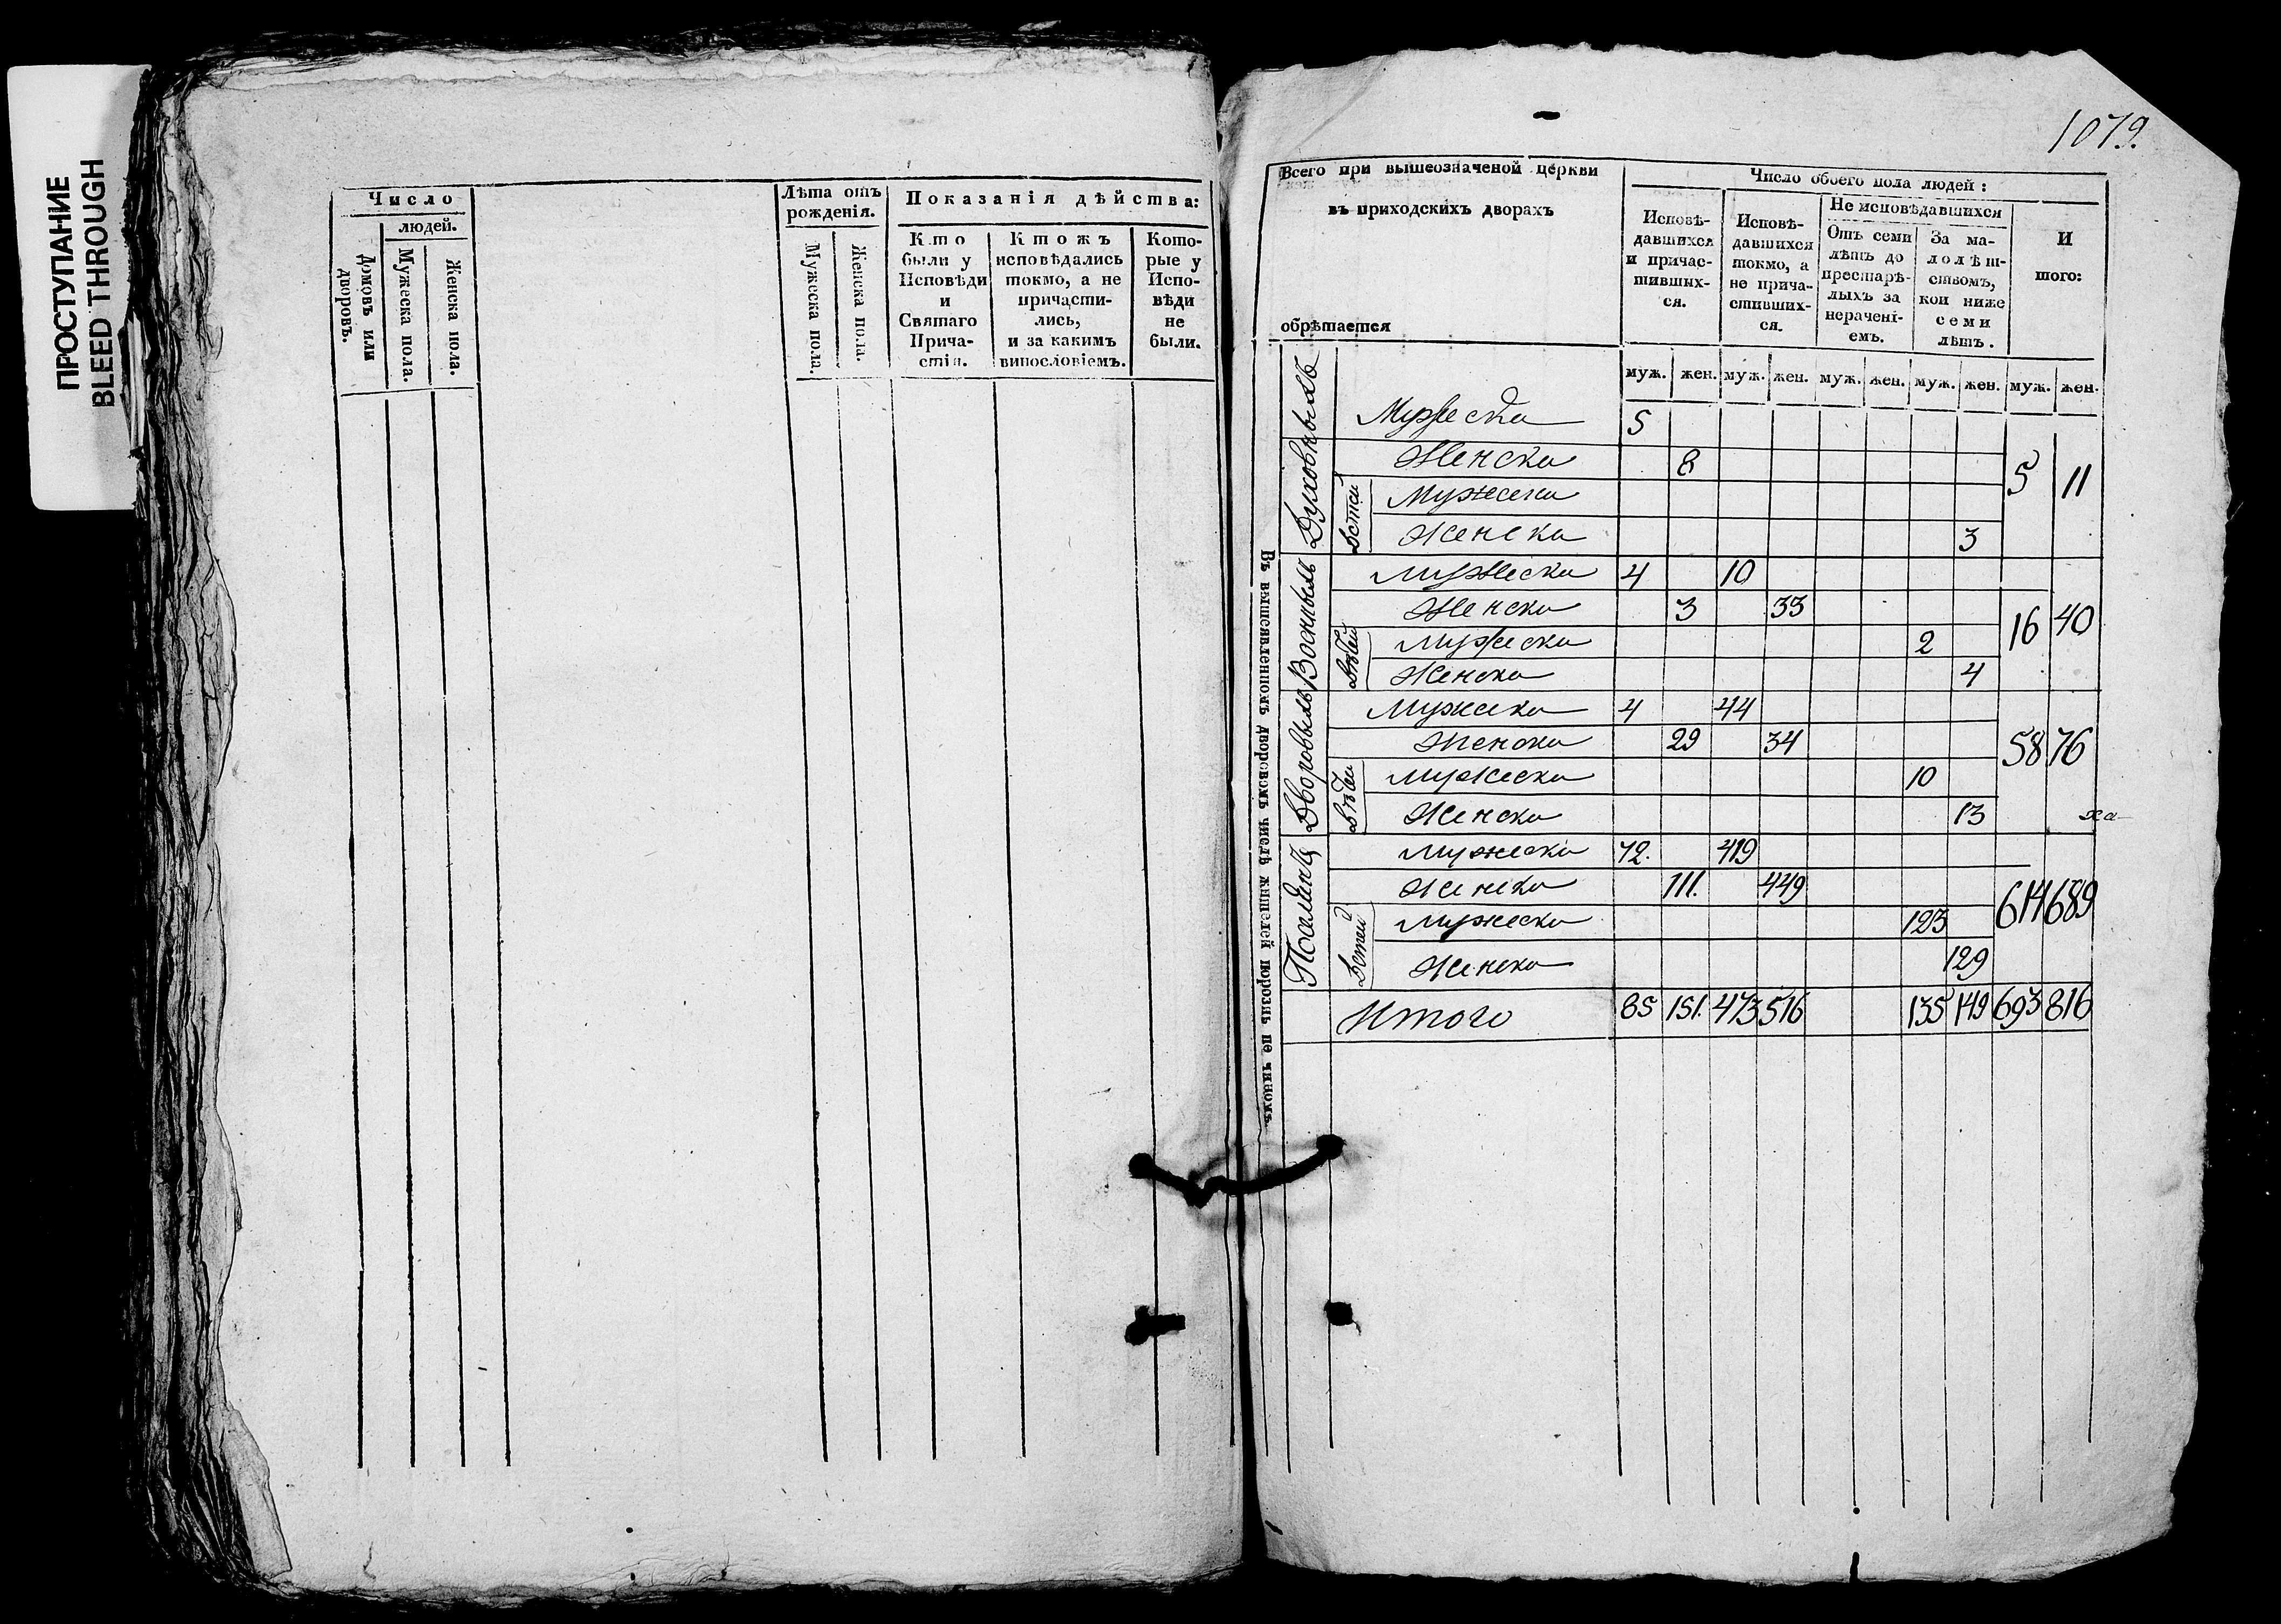 ПРОСТУПАНИЕ
BLEED THROUGH
Число
людей.
Домовъ или дворовъ.
Мужеска пола.
Женска пола.
Лѣта отъ рожденія.
Мужеска пола.
Женска пола.
Показанія дѣйства:
Кто были у Исповѣди и Святаго Причастія.
Ктожъ исповѣдались токмо, а не причастились, и за какимъ винословіемъ.
Которые у Исповѣди не были.
1079.
Всего при вышеозначеной церкви
въ приходскихъ дворахъ
обрѣтается
Число обоего пола людей:
Исповѣдавшихся и причастившихся.
Исповѣдавшихся токмо, а не причастившихся.
Не исповѣдавшихся
Отъ семи лѣтъ до престарѣлыхъ за нераченіемъ.
За малолѣтствомъ, кои ниже семи лѣтъ.
Итого:
муж. жен. муж. жен. муж. жен. муж. жен. муж. жен.
Въ вышеявленномъ дворовомъ числѣ жителей порознь по чиномъ
Духовныхъ
Мужеска 5
Женска 8
5 11
Детей
Мужеска
Женска 3
Военныхъ
Мужеска 4 10
Женска 3 33
16 40
Дѣтей
Мужеска 2
Женска 4
Дворовыхъ
Мужеска 4 44
Женска 29 34
58 76
Дѣтей
Мужеска 10
Женска 13
Мужеска 72. 419
Женска 111. 449
614 689
Детей
Мужеска 123
Женска 129
Итого 85 151. 473 516 135 149 693 816